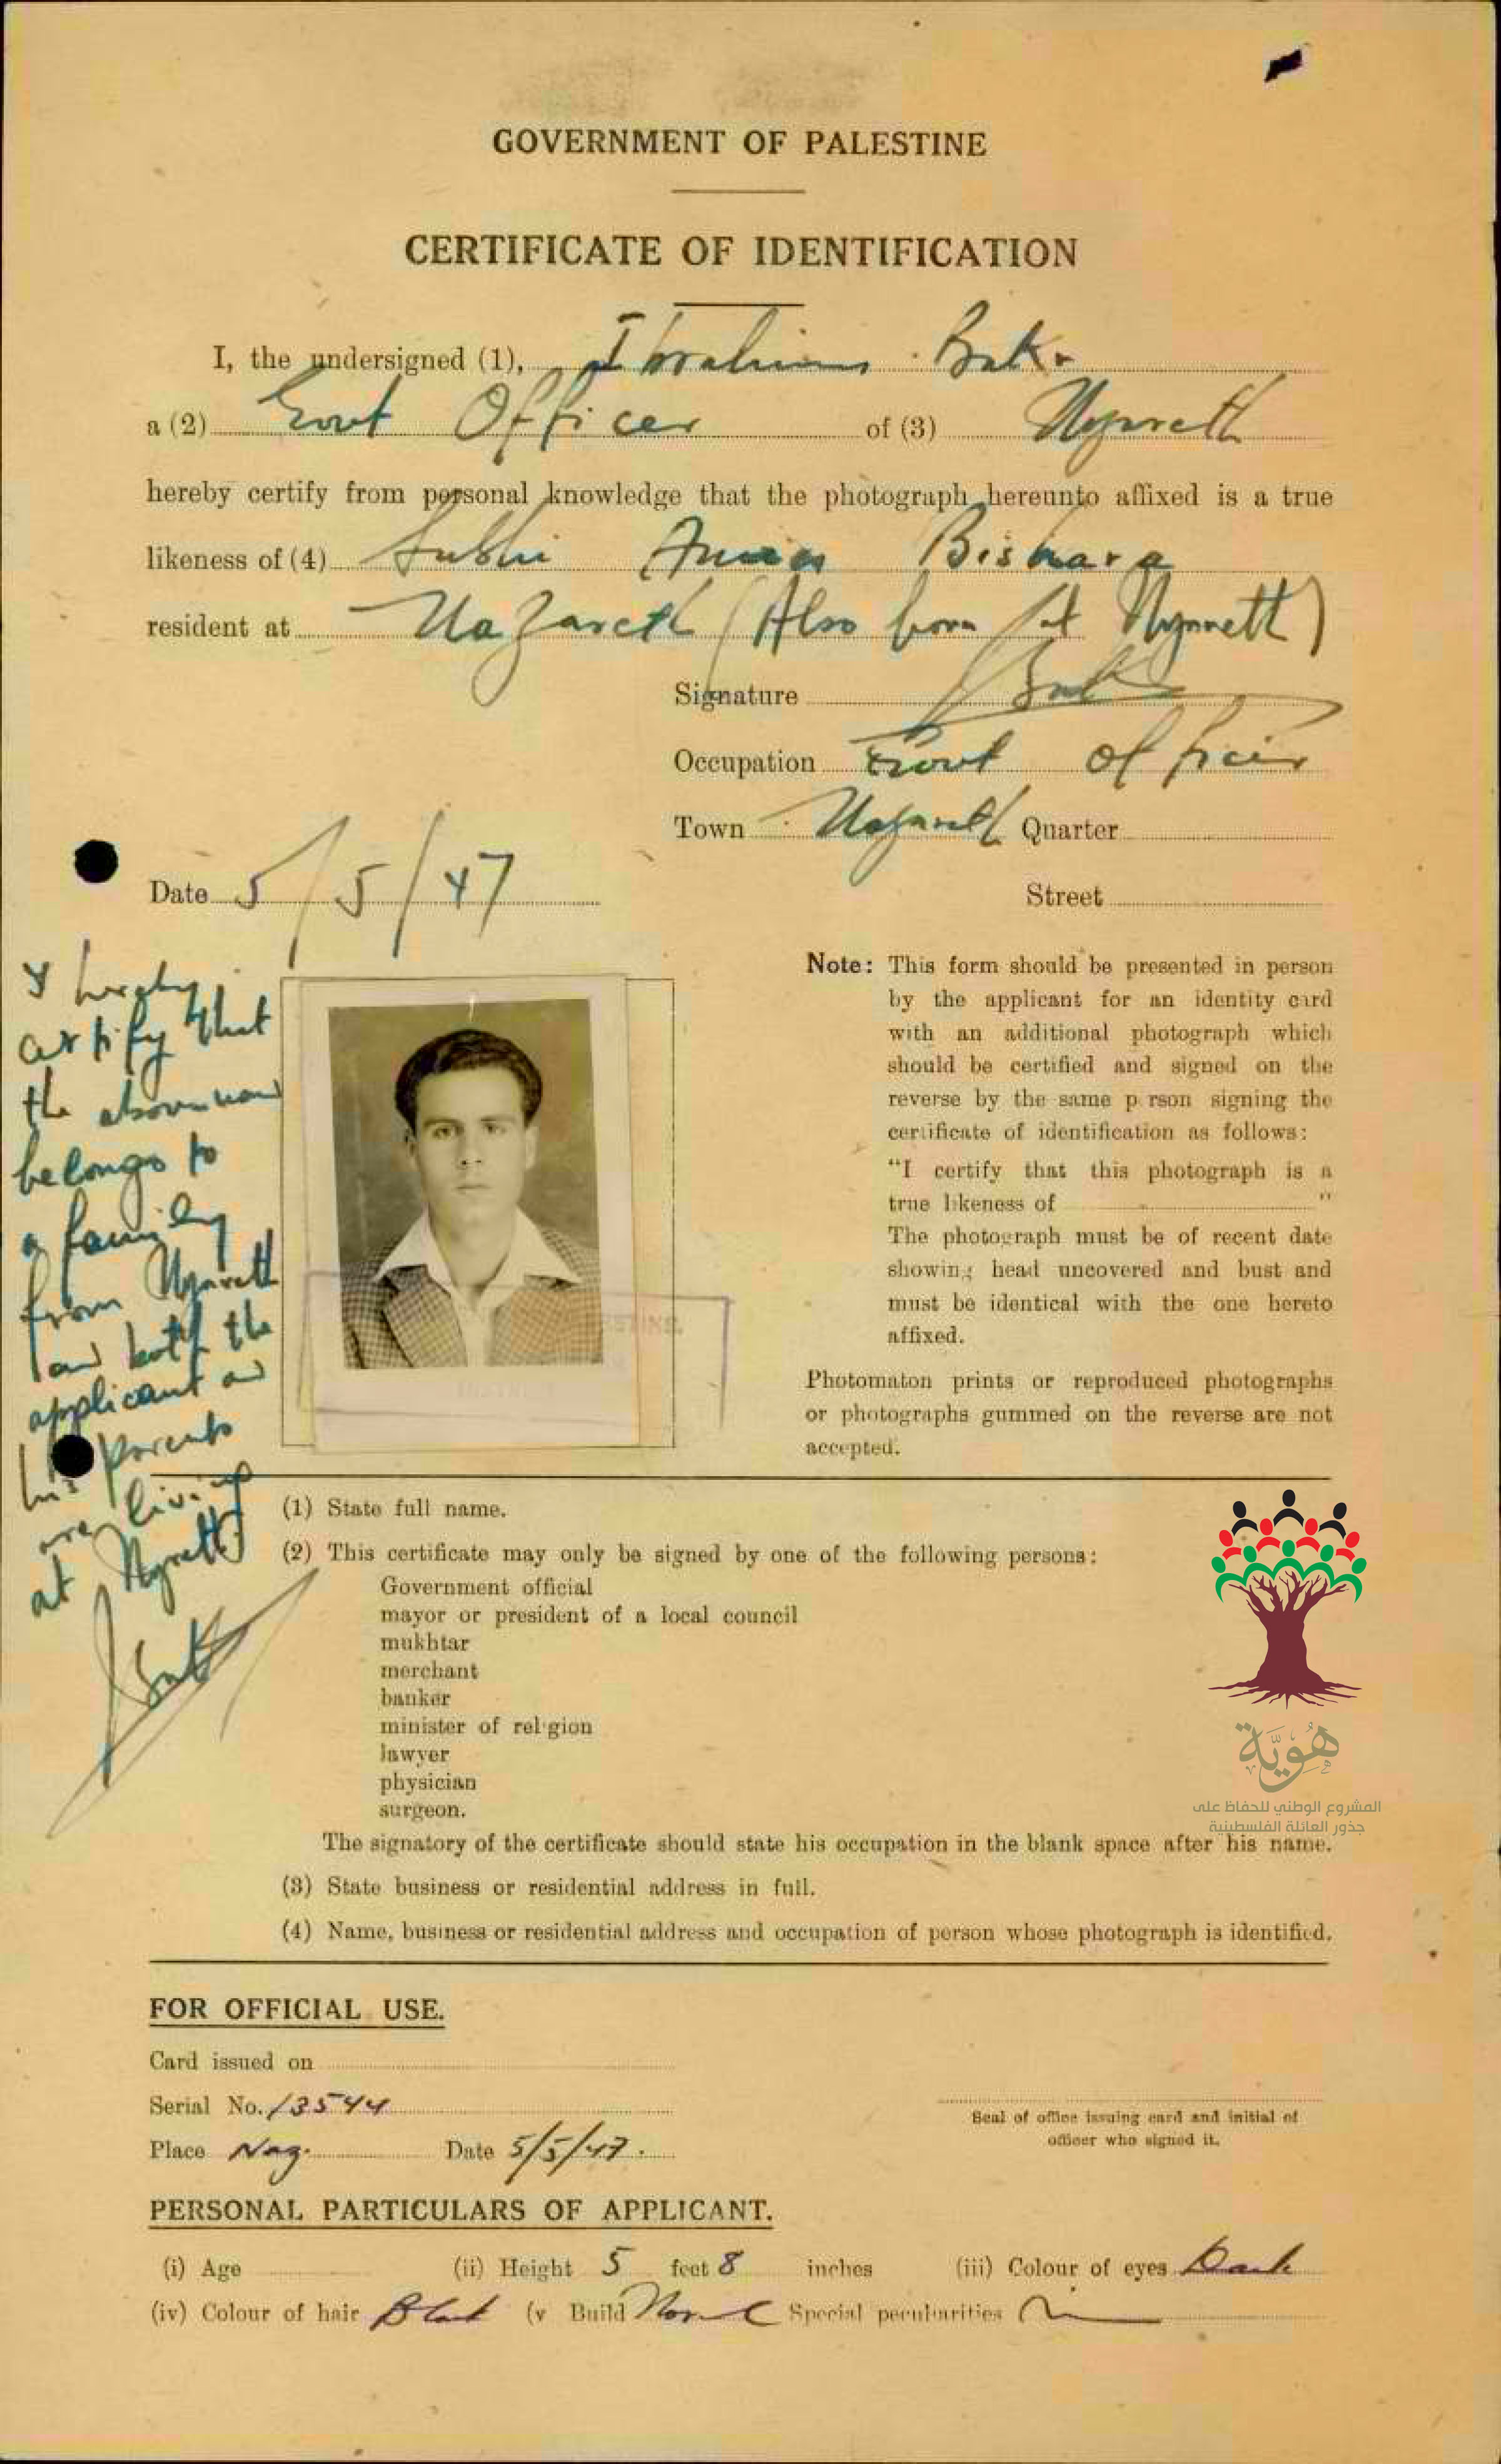 GOVERNMENT OF PALESTINE
CERTIFICATE OF IDENTIFICATION
I, the undersigned (1), Ibrahim
a (2) Govt Officer of (3) Nazareth
hereby certify from personal knowledge that the photograph hereunto affixed is a true
likeness of (4) Subhi Amin Bishara
resident at Nazareth (Also born at Nazareth)
Signature
Occupation Govt Officer
Town Nazareth Quarter
Date 5/5/47
Street
I hereby
certify that
the above named
belongs to
a family
from Nazareth
and both the
applicant and
his parents
are living
at Nazareth
Note: This form should be presented in person
by the applicant for an identity card
with an additional photograph which
should be certified and signed on the
reverse by the same p rson signing the
certificate of identification as follows:
"I certify that this photograph is a
true likeness of "
The photograph must be of recent date
showing head uncovered and bust and
must be identical with the one hereto
affixed.
Photomaton prints or reproduced photographs
or photographs gummed on the reverse are not
accepted.
(1) State full name.
(2) This certificate may only be signed by one of the following persons:
Government official
mayor or president of a local council
mukhtar
merchant
banker
minister of religion
lawyer
physician
surgeon.
The signatory of the certificate should state his occupation in the blank space after his name.
(3) State business or residential address in full.
(4) Name, business or residential address and occupation of person whose photograph is identified.
هُوِيَّة
المشروع الوطني للحفاظ على
جذور العائلة الفلسطينية
FOR OFFICIAL USE.
Card issued on
Serial No. 13544
Place Naz. Date 5/5/47.
Seal of office issuing card and initial of
officer who signed it.
PERSONAL PARTICULARS OF APPLICANT.
(i) Age (ii) Height 5 feet 8 inches (iii) Colour of eyes Dark
(iv) Colour of hair Black (v Build Normal Special peculiarities